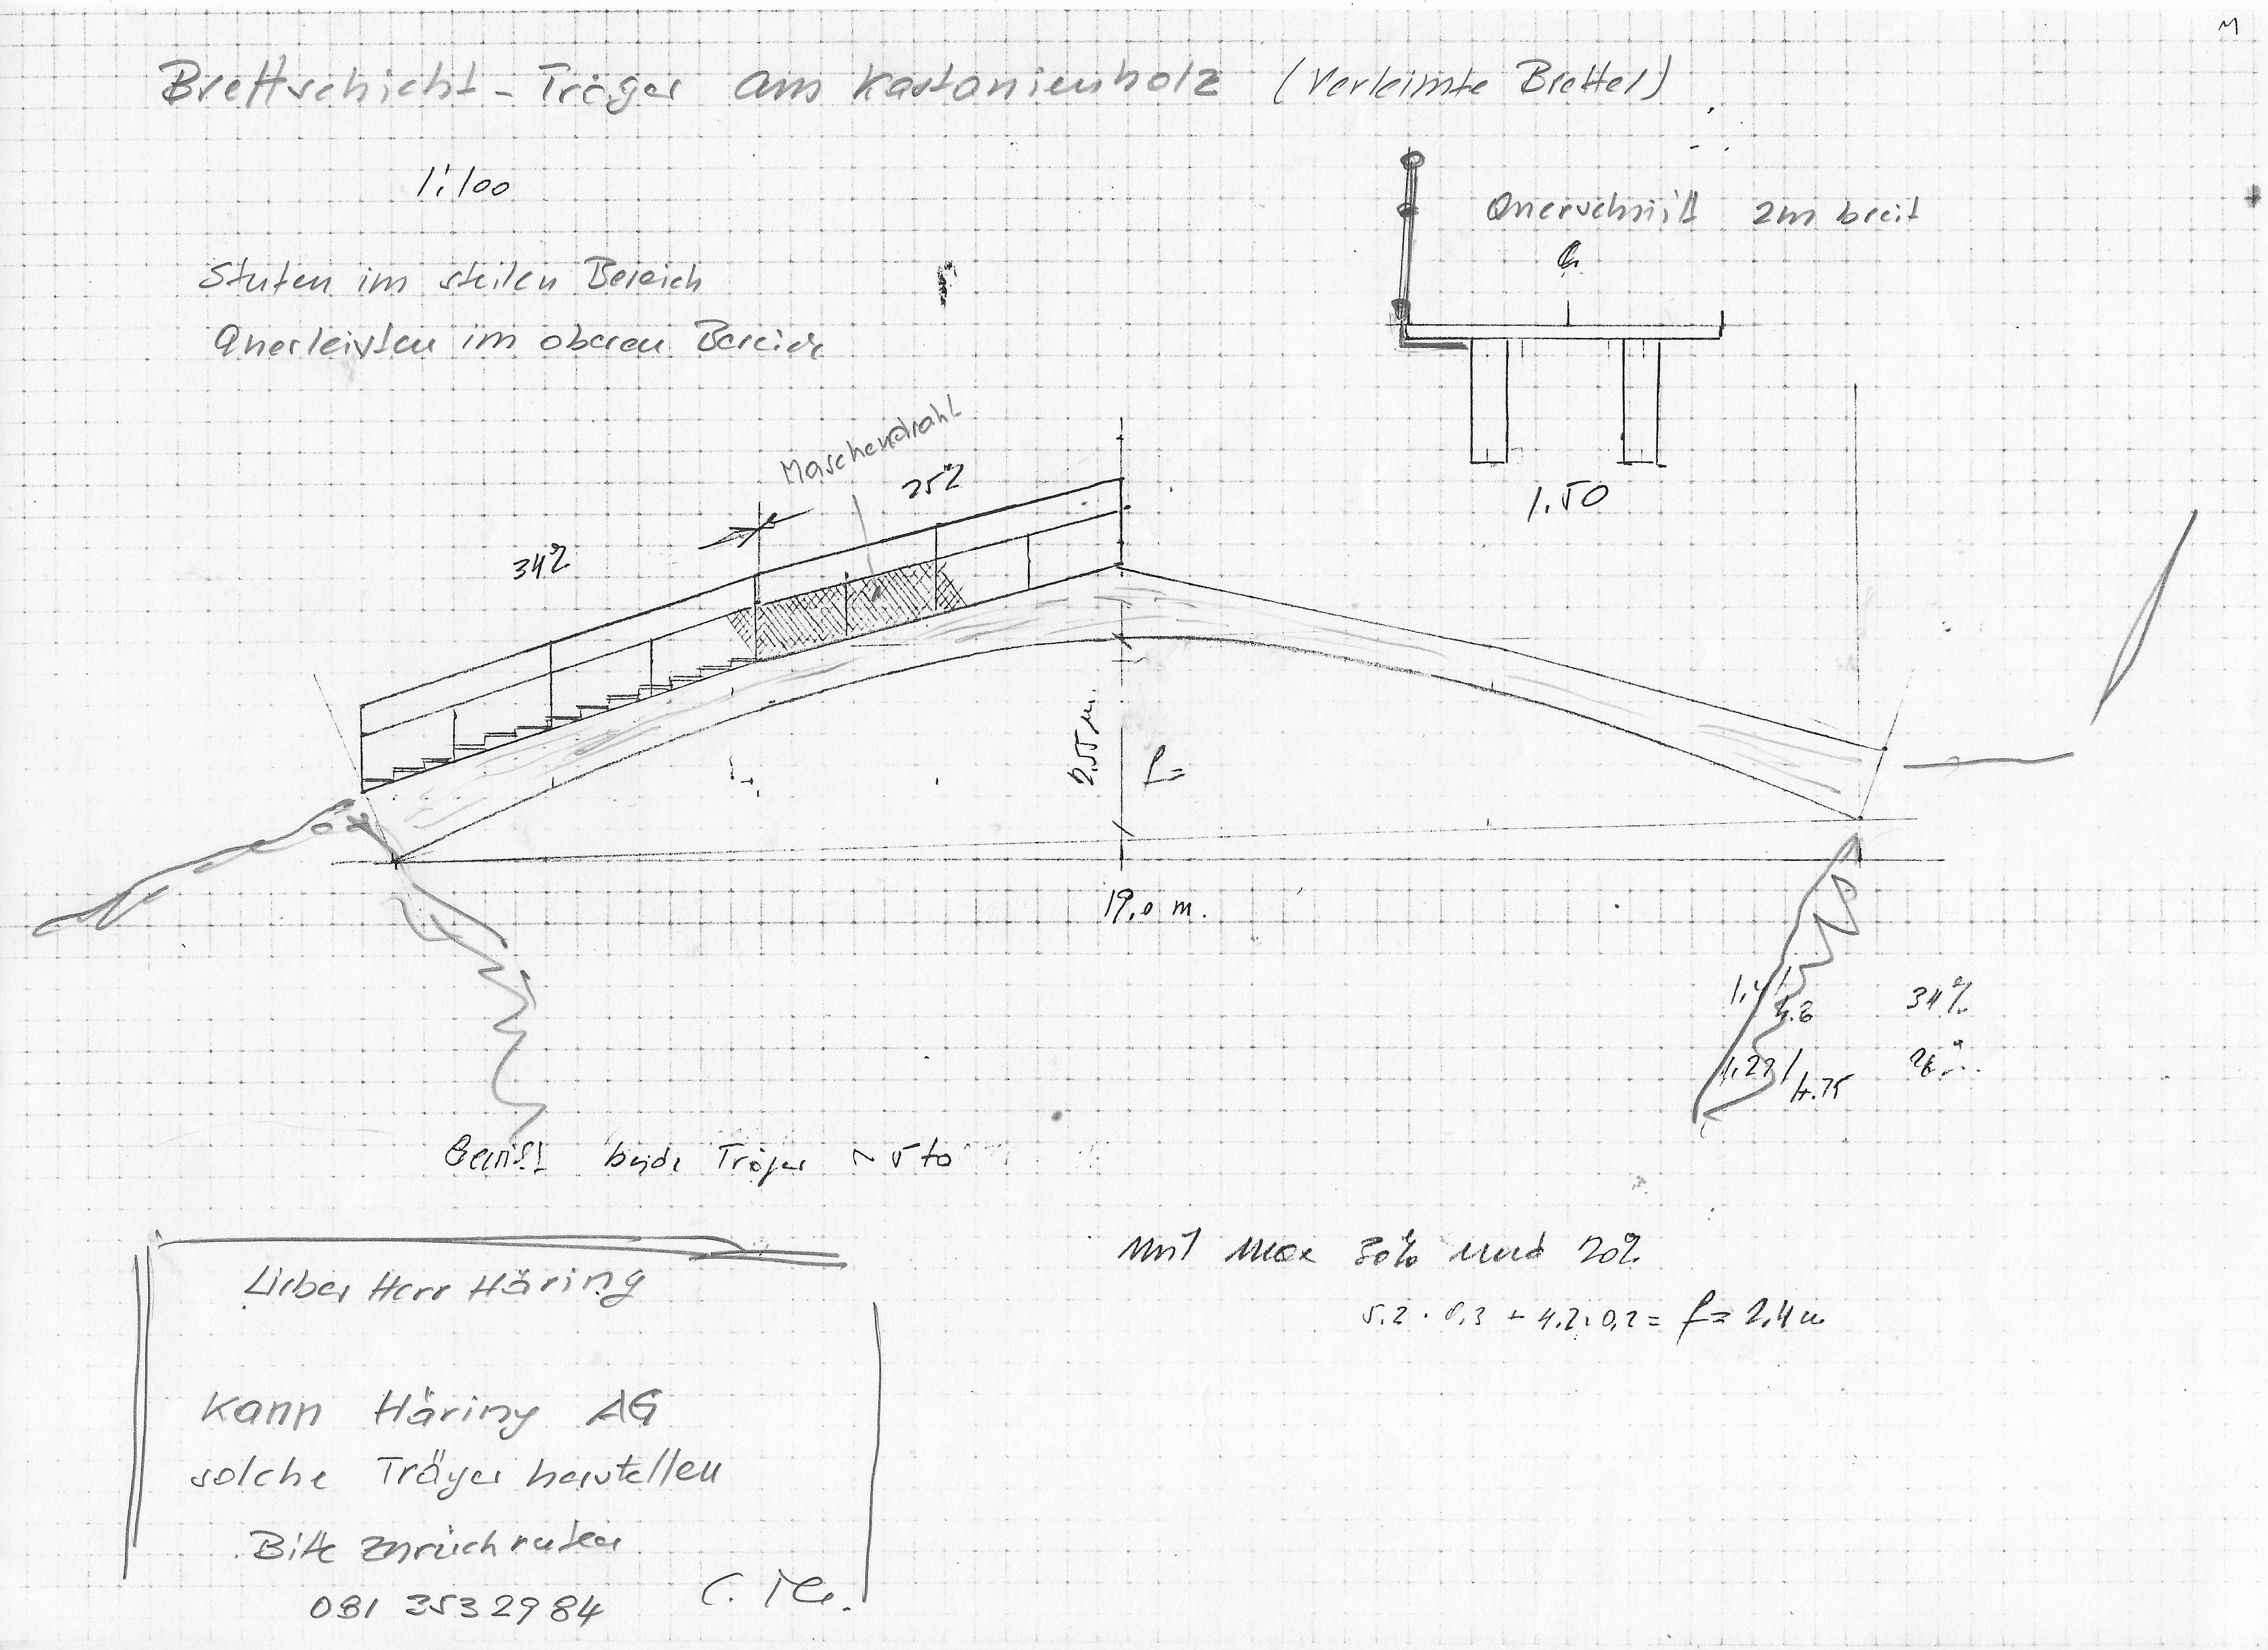 Brettschicht-Träger aus Kastanienholz (Verleimte Brettel)
1:100
Querschnitt 2m breit
Stufen im steilen Bereich
Querleisten im oberen Bereich
Maschendraht
25%
34%
1.50
2,55 m.
f=
19,0 m.
34%
1,22/4.75
Gewicht beide Träger ~ 5 to
Mit max 30% und 20%
5.2 · 0,3 + 4.2·0,2 = f = 2,4 m
Lieber Herr Häring
Kann Häring AG
solche Träger herstellen
Bitte zurückrufen
081 353 29 84